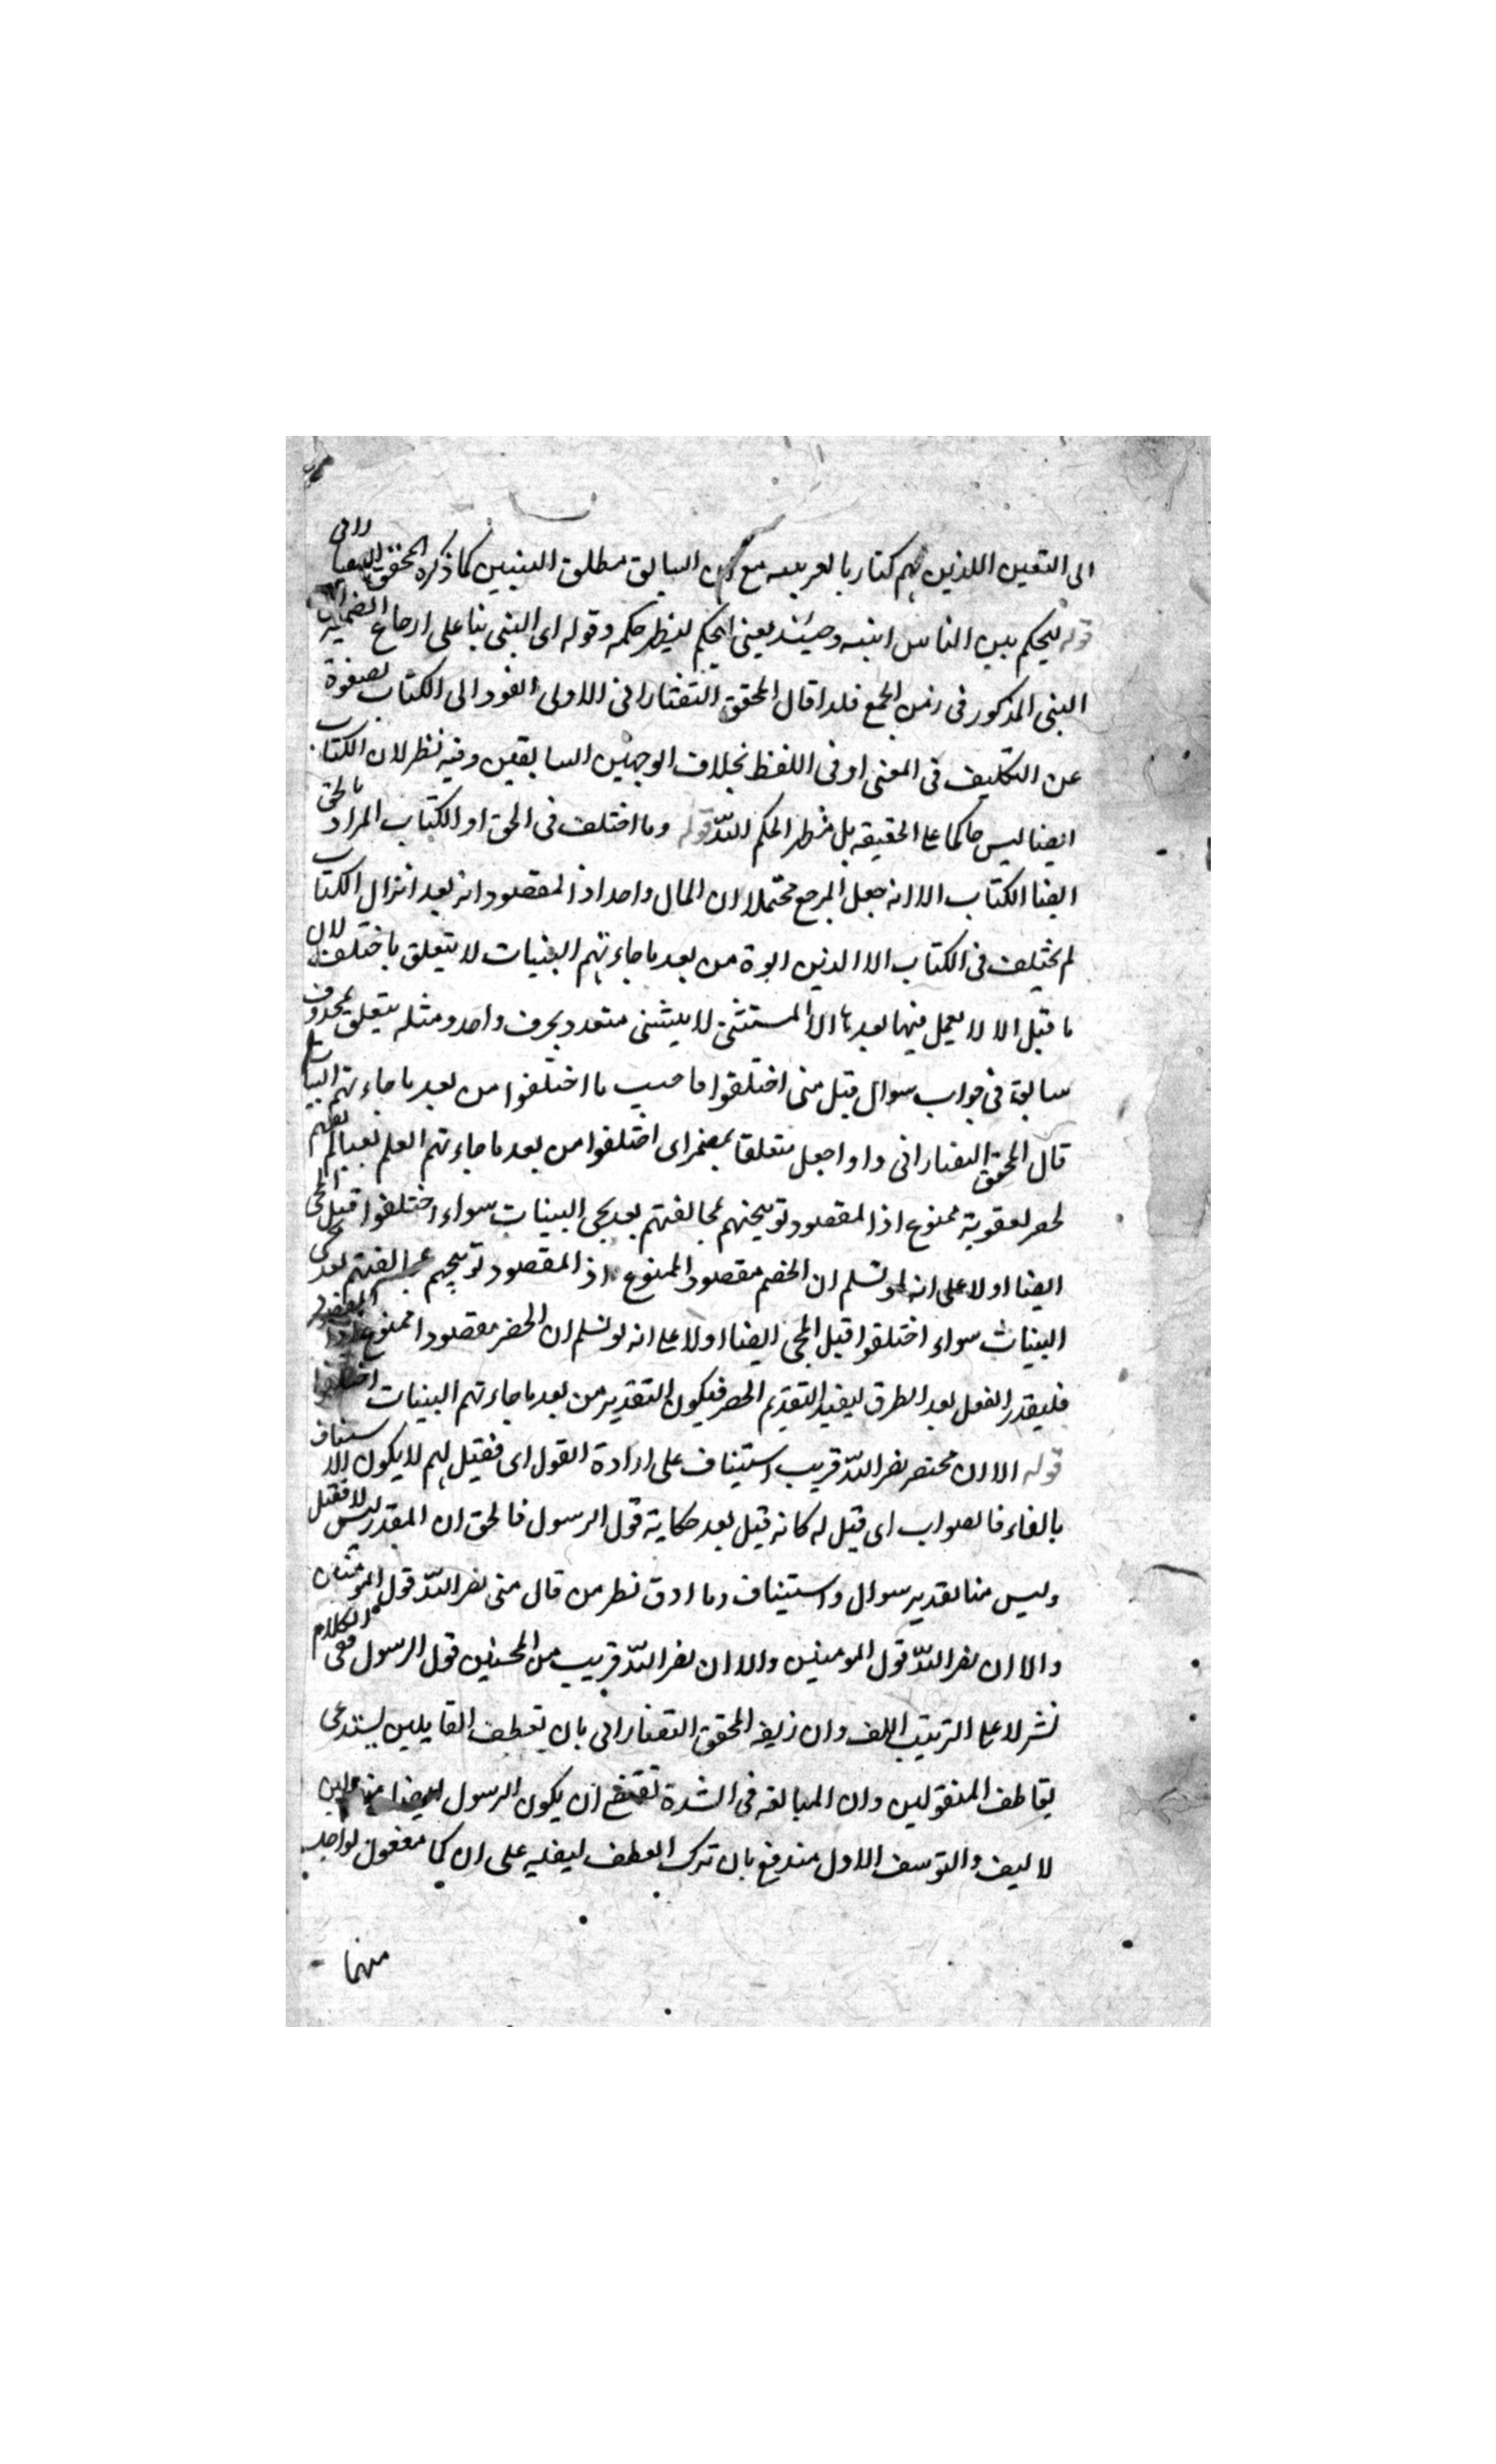 الى التعين اللذين لهم كتاب بالعربيه مع ان السابق مطلق النبيين كما ذكره المحقق التفتازانى
قوله ليحكم بين الناس انبه وحينئذ يعنى ليحكم ليظهر حكمه وقوله اى النبى بنا على ارجاع الضمير
النبى المذكور فى ضمن الجمع فلذا قال المحقق التفتازانى الاولى العود الى الكتاب
عن التكليف فى المعنى او فى اللفظ بخلاف الوجهين السابقين وفيه نظر لان الكتاب
ايضا ليس حاكما على الحقيقه بل مظهر الحكم الله قوله وما اختلف فى الحق او الكتاب المراد بالحق
ايضا الكتاب الا انه جعل المرجع محتملا ان المال واحد اذ المقصود انه بعد انزال الكتاب
لم يختلف فى الكتاب الا الذين اتوه من بعد ما جاءتهم البينات لا يتعلق باختلف لان
ما قبل الا لا يعمل فيما بعدها الا المستثنى لا يستثنى متعدد بحرف واحد ومثله يتعلق بمحذوف
سابق فى جواب سوال قيل متى اختلفوا فاجيب ما اختلفوا من بعد ما جاءتهم البينات
قال المحقق التفتازانى واو اجعل متعلقا بمضمر اى اختلفوا من بعد ما جاءتهم العلم بغيا
لحصر لعقوبة ممنوع اذا المقصود توبيخهم بمخالفتهم بعد مجى البينات سواء اختلفوا قبل المجى
ايضا اولا على انه لو نسلم ان الخصم مقصود الممنوع اذ المقصود توبيخهم بعد مجى
البينات سواء اختلفوا قبل المجى ايضا اولا على انه لو نسلم ان الحصر مقصود ا ممنوع
فليقدر الفعل بعد الظرف ليفيد التقديم الحصر فيكون التقدير من بعد ما جاءتهم البينات اختلفوا
قوله الا ان نصر الله قريب استيناف على ارادة القول اى فقيل لهم لا يكون الا استيناف
بالفاء فالصواب اى قيل له كانه قيل بعد حكاية قول الرسول فالحق ان المقدر ليس الا فقيل
وليس هنا تقدير سوال واستيناف وما ادق نظر من قال متى نصر الله قول المومنين
والا ان نصر الله قول المومنين والا ان نصر الله قريب من المحسنين قول الرسول ففى الكلام
نشر لا على الترتيب اللف وان زيفه المحقق التفتازانى بان تعطف القايلين يستدعى
تعاطف المنقولين وان المبالغه فى الشدة تقتضى ان يكون الرسول ايضا
لا ليف والتوسف الاول مندفع بان ترك العطف على ان كما مفعول لواحد
منهما